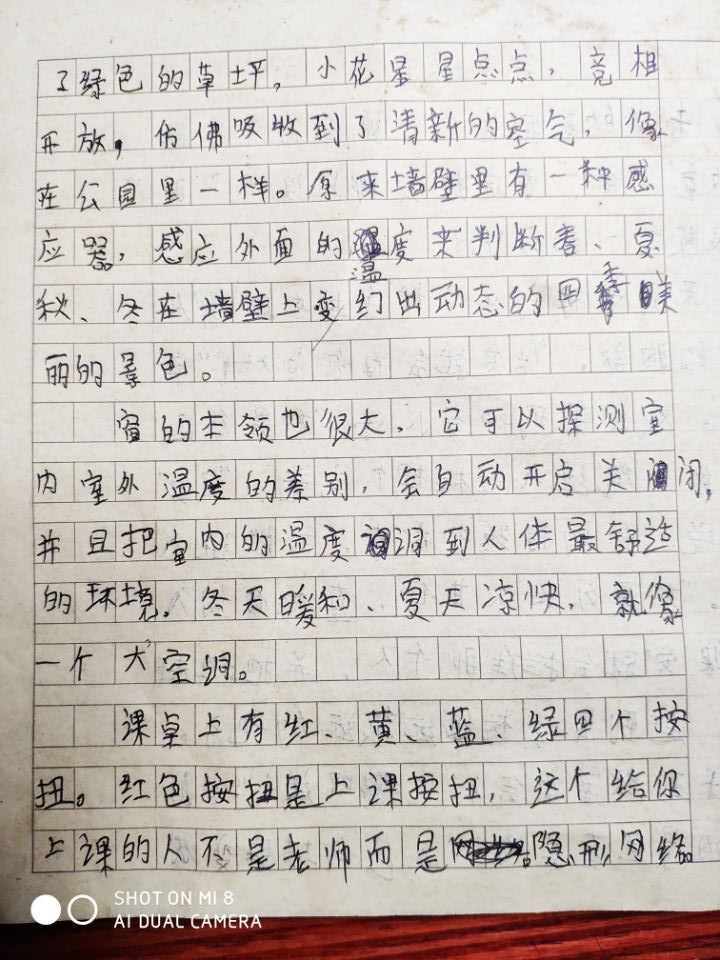 了绿色的草坪，小花星星点点，竞相
开放，仿佛吸收到了清新的空气，像
在公园里一样。原来墙壁里有一种感
应器，感应外面的温度来判断春、夏
秋、冬在墙壁上变幻出动态的四季美
丽的景色。
窗的本领也很大，它可以探测室
内室外温度的差别，会自动开启关闭，
并且把室内的温度调到人体最舒适
的环境，冬天暖和、夏天凉快，就像
一个大空调。
课桌上有红、黄、蓝、绿四个按
扭。红色按扭是上课按扭，这个给你
上课的人不是老师而是隐形网络。
SHOT ON MI 8
AI DUAL CAMERA